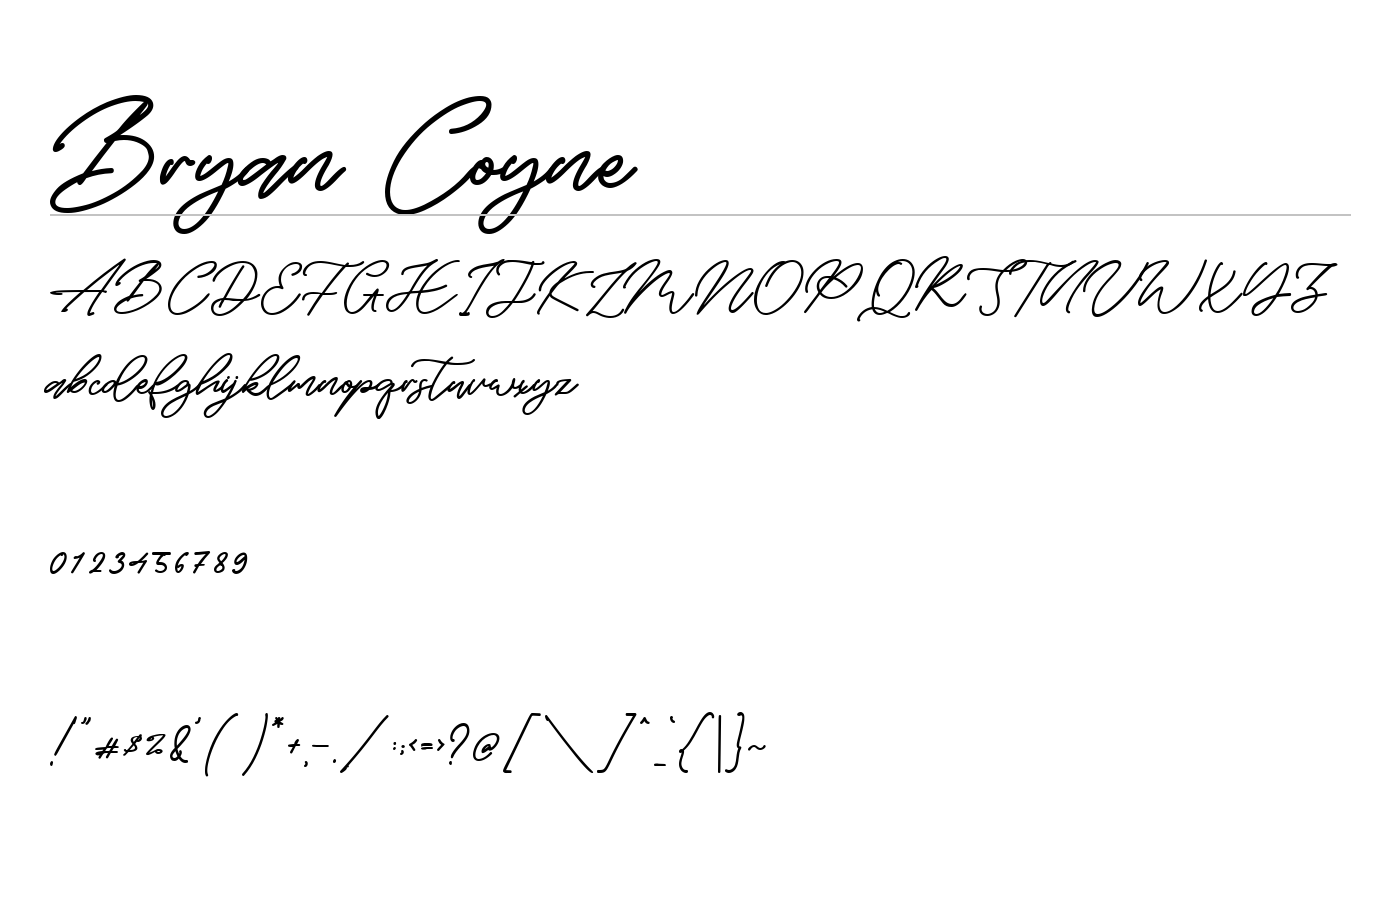 Bryan Coyne
ABCDEFGHIJKLMNOPQRSTUVWXYZ
abcdefghijklmnopqrstuvwxyz
0123456789
!"#$%&'()*+,-./:;<=>?@[\]^_`{|}~